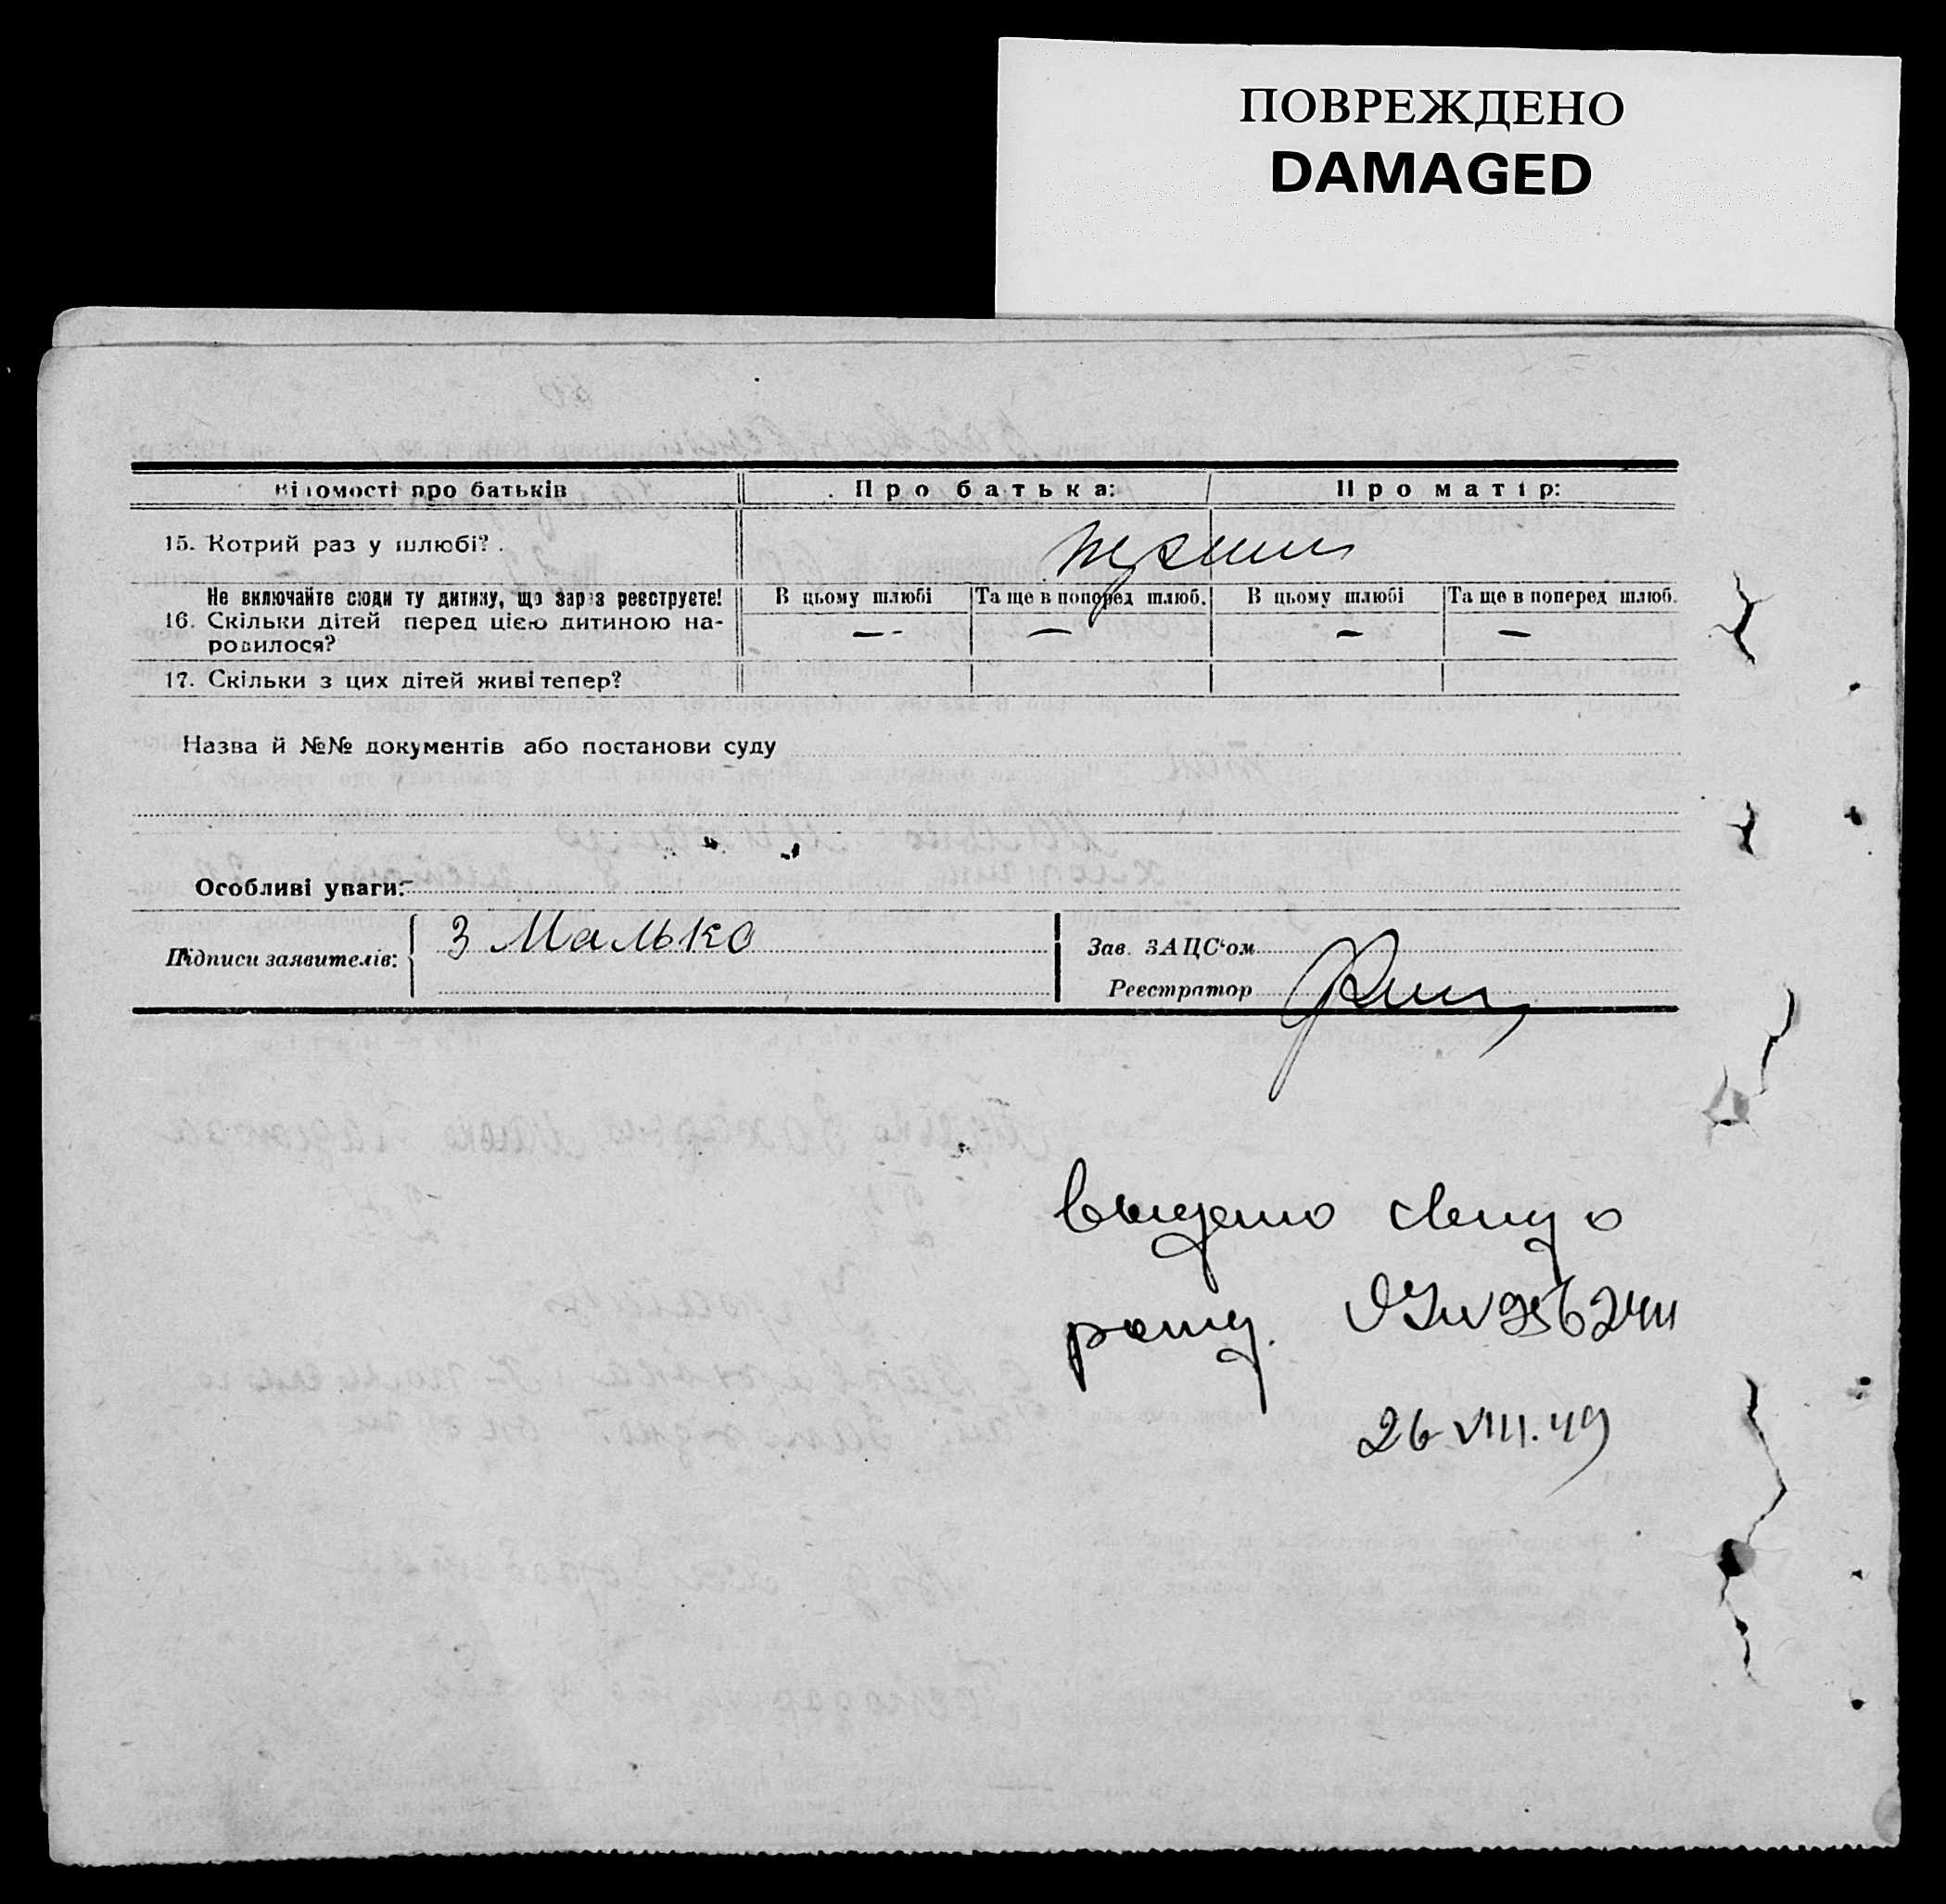 ПОВРЕЖДЕНО
DAMAGED
Відомості про батьків Про батька: Про матір:
15. Котрий раз у шлюбі?
Не включайте сюди ту дитину, що зараз реєструєте! В цьому шлюбі Та ще в поперед шлюб. В цьому шлюбі Та ще в поперед шлюб.
16. Скільки дітей перед цією дитиною на-
родилося? — — — —
17. Скільки з цих дітей живі тепер?
Назва й №№ документів або постанови суду
Особливі уваги:
Підписи заявителів: З Малько
Зав. ЗАЦС'ом
Реєстратор
выдано свид о
рожд.
26 VIII.49